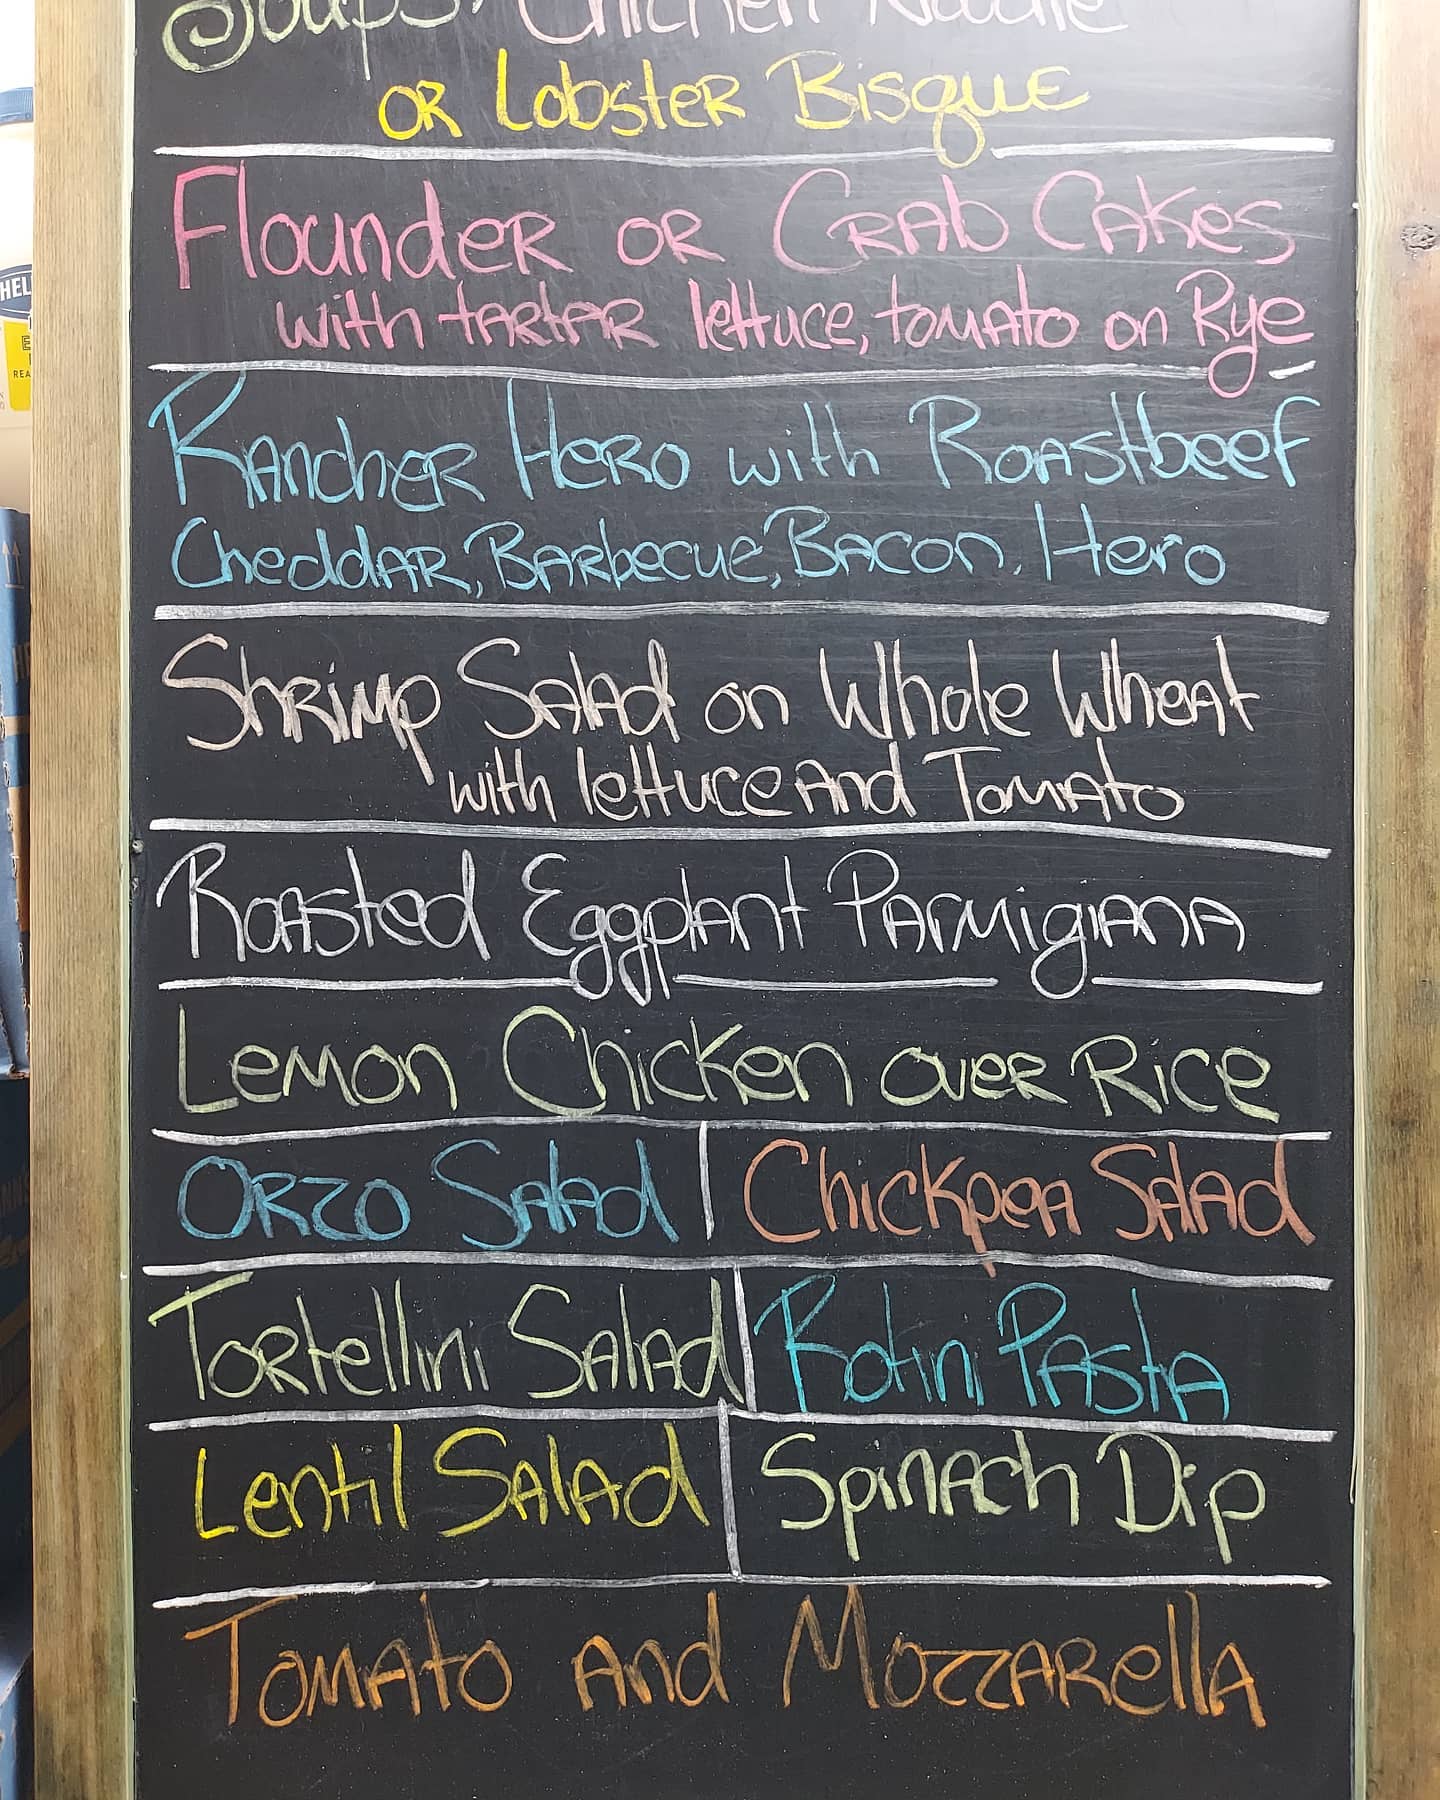 Soups, Chicken Noodle
or Lobster Bisque
Flounder or Crab Cakes
with tartar lettuce, tomato on Rye
Rancher Hero with Roastbeef
Cheddar, Barbecue, Bacon, Hero
Shrimp Salad on Whole Wheat
with lettuce and Tomato
Roasted Eggplant Parmigiana
Lemon Chicken over Rice
Orzo Salad
Chickpea Salad
Tortellini Salad
Rotini Pasta
Lentil Salad
Spinach Dip
Tomato and Mozzarella
HEL
REA